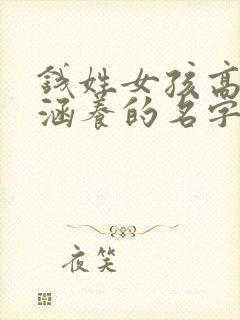 钱姓女孩高
涵养的名字
夜笑